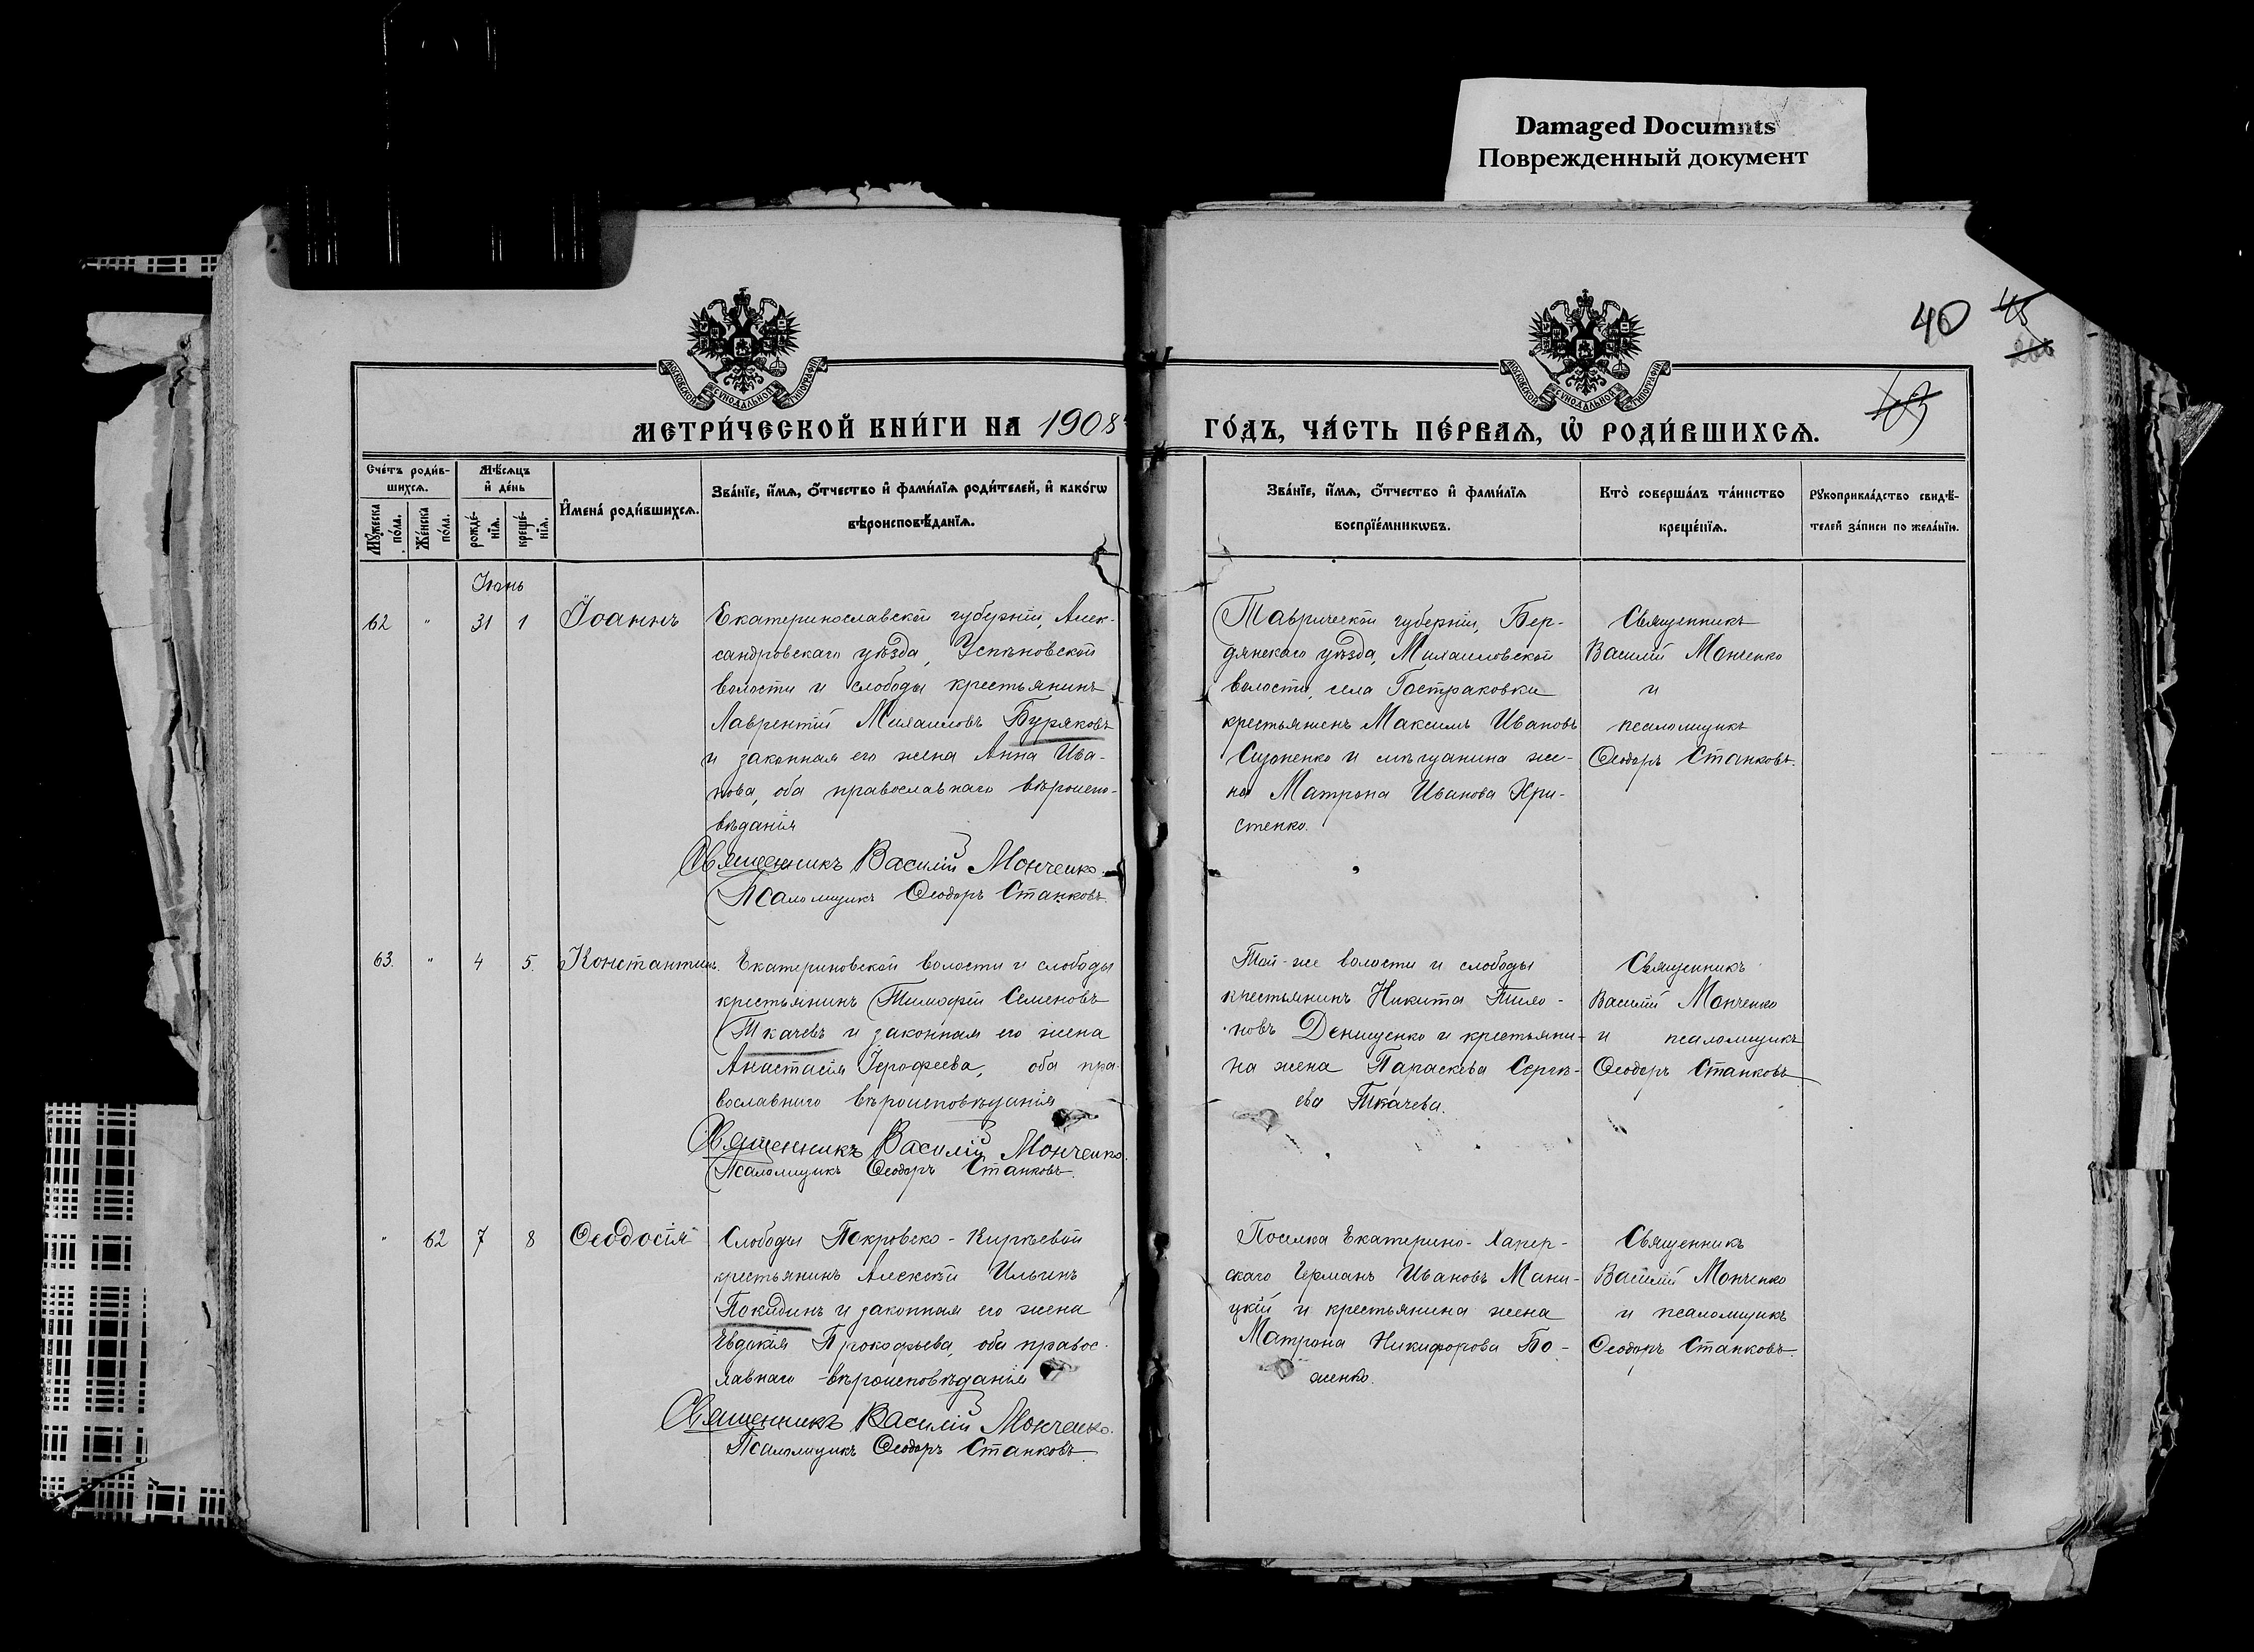 Damaged Documnts
Поврежденный документ
40
МОСКОВСКОЙ СѴНОДАЛЬНОЙ ТИПОГРАФІИ
МОСКОВСКОЙ СѴНОДАЛЬНОЙ ТИПОГРАФІИ
МЕТРИ́ЧЕСКОЙ КНИ́ГИ НА 1908
ГО́ДЪ, ЧА́СТЬ ПЕ́РВАѦ, Ѽ РОДИ́ВШИХСѦ.
Сче́тъ роди́в-
шихсѧ.
Мꙋ́жеска по́ла.
Же́нска по́ла.
Мѣ́сѧцъ
и҆ де́нь
рожде́нїѧ.
креще́нїѧ.
И҆мена̀ роди́вшихсѧ.
Зва́нїе, и҆́мѧ, ѻ҆́тчество и҆ фами́лїѧ роди́телей, и҆ како́гѡ
вѣроисповѣ́данїѧ.
Зва́нїе, и҆́мѧ, ѻ҆́тчество и҆ фами́лїѧ
воспрїе́мникѡвъ.
Кто̀ соверша́лъ та́инство
креще́нїѧ.
Рꙋкоприкла́дство свидѣ́-
телей за́писи по жела́нїю.
Іюнь
62 " 31 1 Іоаннъ
Екатеринославской губерніи, Алек-
сандровскаго уѣзда, Успѣновской
волости и слободы крестьянинъ
Лаврентій Михаиловъ Буряковъ
и законная его жена Анна Ива-
нова, оба православнаго вѣроиспо-
вѣданія
Священникъ Василій Монченко.
Псаломщикъ Ѳеодоръ Станковъ.
Таврической губерніи, Бер-
дянскаго уѣзда, Михаиловской
волости, села
крестьянинъ Максимъ Ивановъ
и мѣщанина же-
на Матрона Иванова Хри-
стенко.
Священникъ
Василій Монченко
и
псаломщикъ
Ѳеодоръ Станковъ.
63. " 4 5. Константинъ.
Екатериновской волости и слободы
крестьянинъ Тимофій Семеновъ
Ткачевъ и законная его жена
Анастасія Іерофеева, оба пра-
вославнаго вѣроисповѣданія
Священникъ Василій Монченко.
Псаломщикъ Ѳеодоръ Станковъ.
Той-же волости и слободы
крестьянинъ Никита Тихо-
новъ Денищенко и крестьяни-
на жена Параскева Сергѣ-
ева Ткачева.
Священникъ
Василій Монченко
и псаломщикъ
Ѳеодоръ Станковъ
" 62 7 8 Ѳеодосія
Слободы Покровско-Кирѣевой
крестьянинъ Алексѣй Ильинъ
Покидинъ и законная его жена
Евдокія Прокофьева, оба правос-
лавнаго вѣроисповѣданія
Священникъ Василій Монченко.
Псаломщикъ Ѳеодоръ Станковъ.
Поселка Екатерино-Хапер-
скаго Германъ Ивановъ Мани-
цкій и крестьянина жена
Матрона Никифорова Бо-
женко.
Священникъ
Василій Монченко
и псаломщикъ
Ѳеодоръ Станковъ.